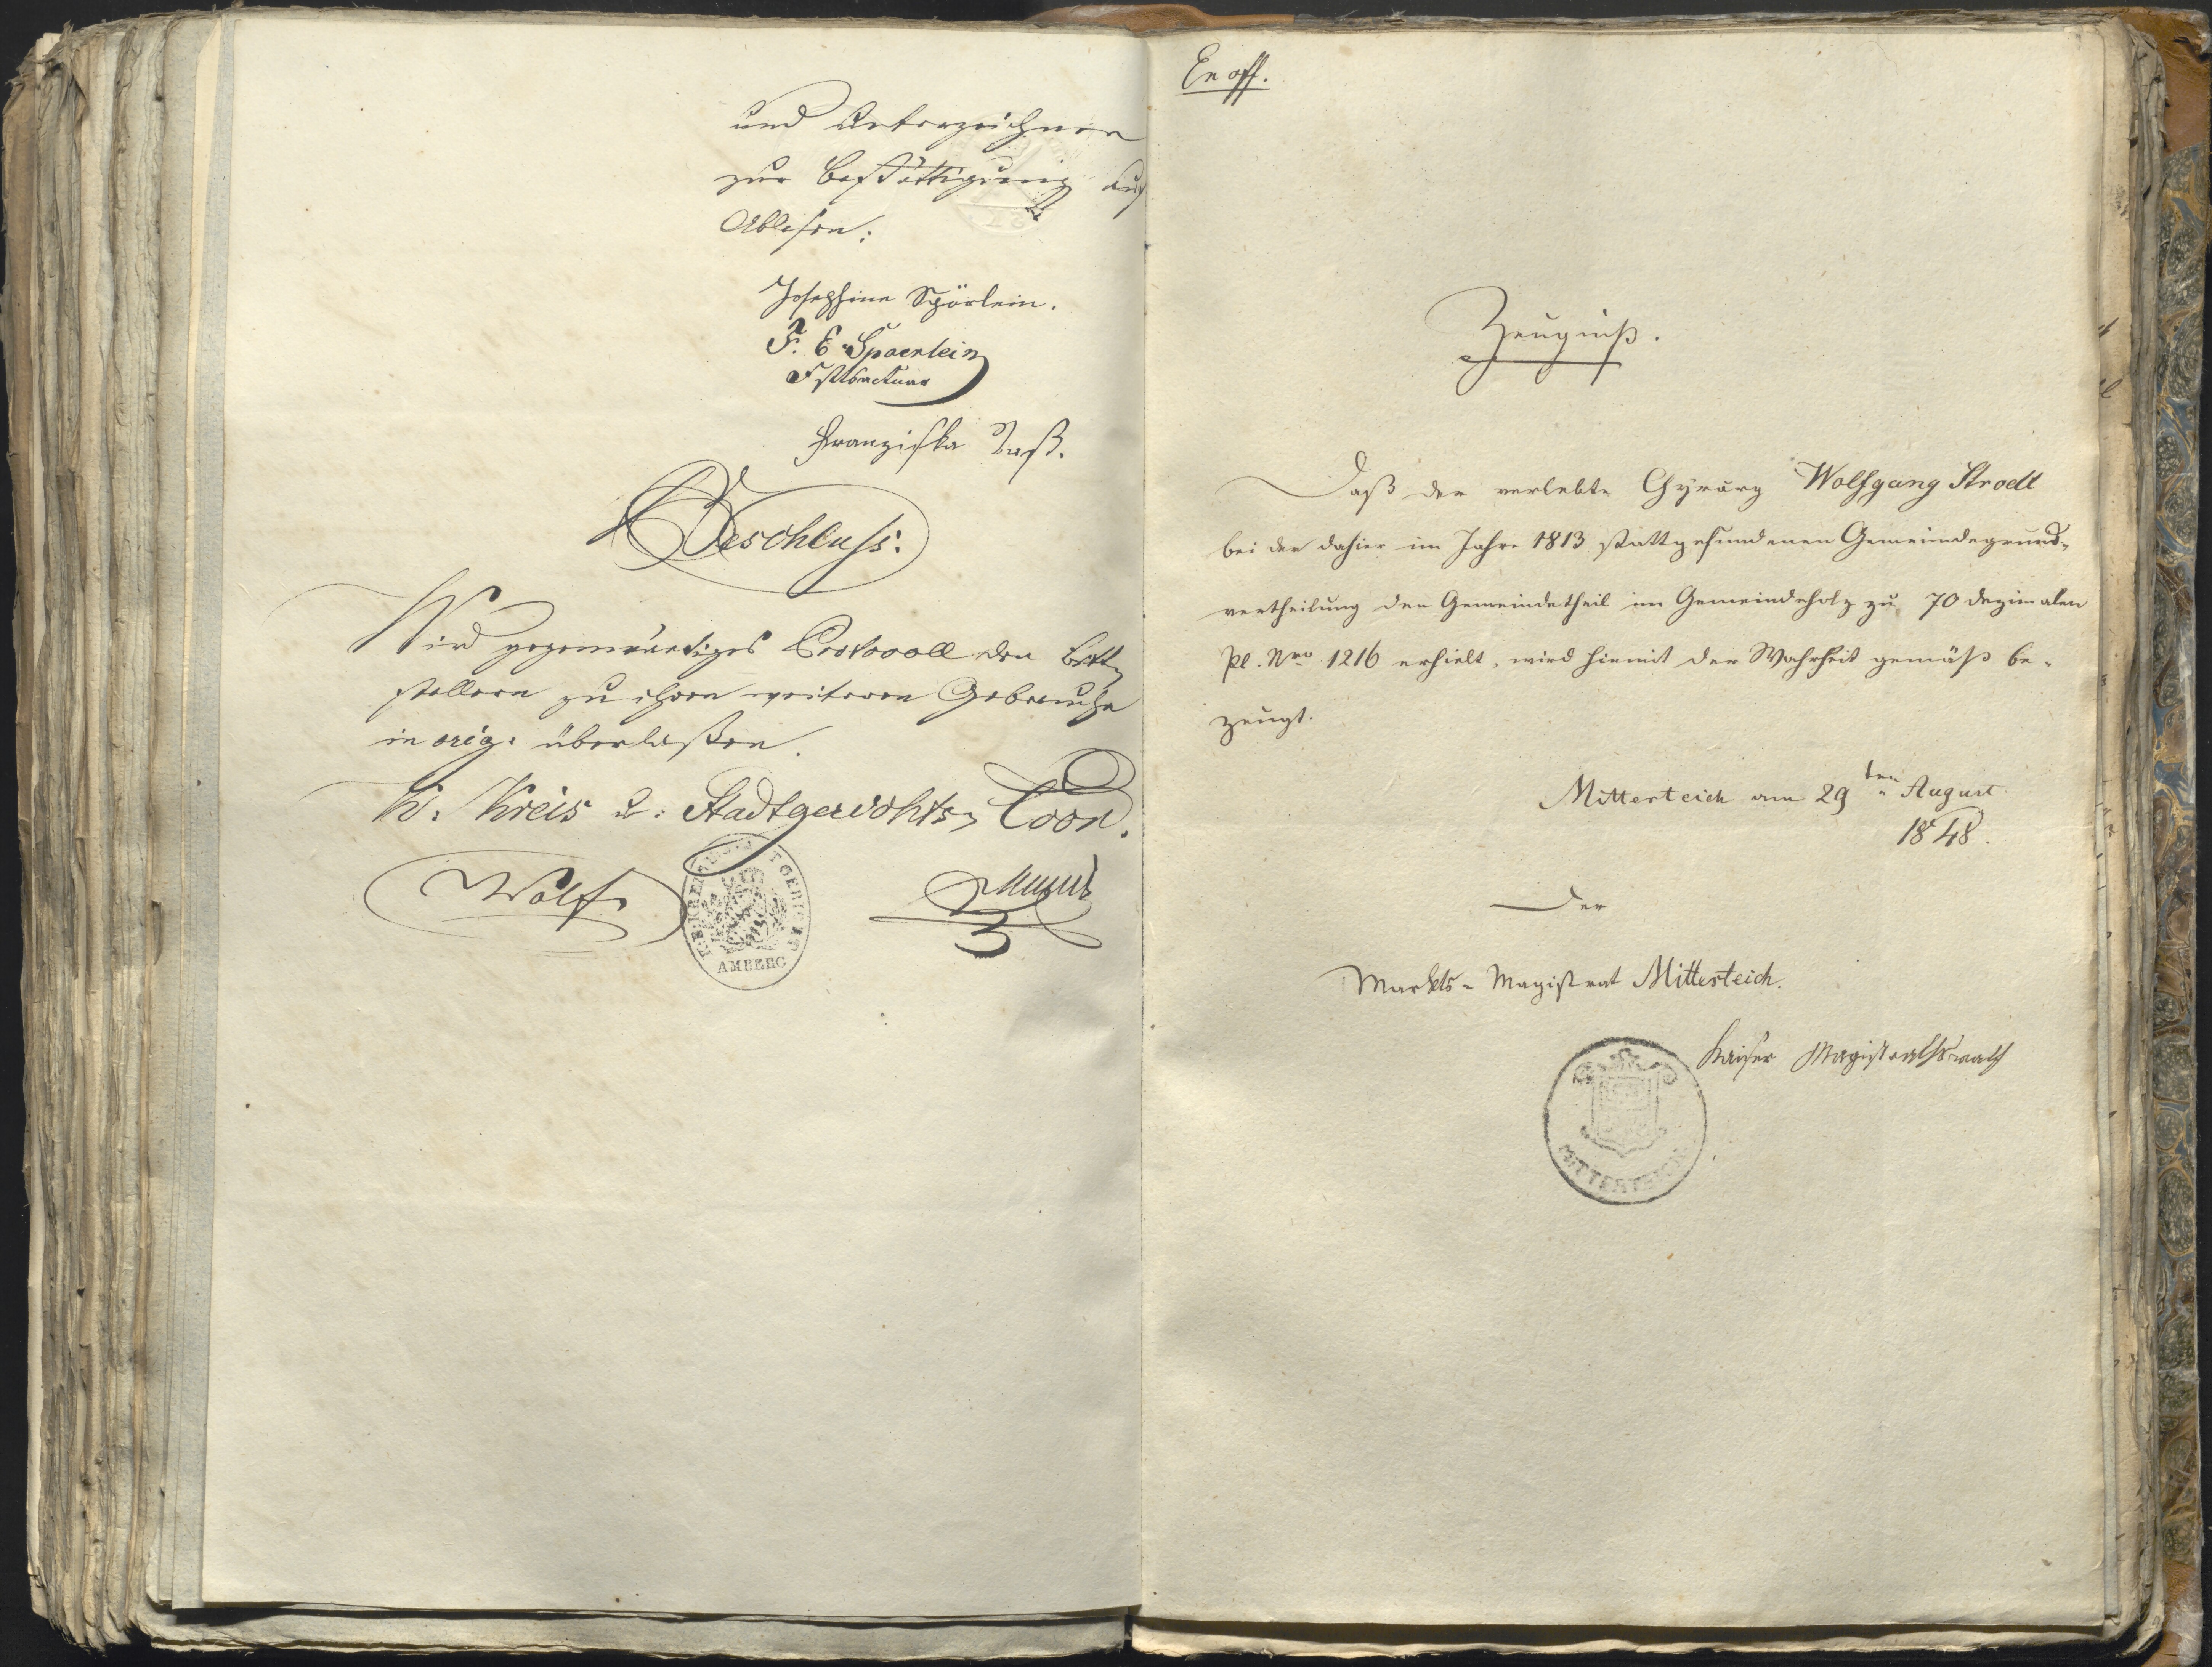 und Unterzeichnen
zur Bestättigung auf
Ablesen:
Josephine Spörlein.
F. E. Spoerlein
Franziska
Beschluss.
Wird gegenwärtiges Protocoll den Bitt-
stellern zu ihrem weiteren Gebrauche
in orig. überlaßen.
K. Kreis u: Stadtgerichts-Coon.
Wolf
AMBERG
Ex off.
Zeugniß.
Daß der verlebte Chyrurg Wolfgang Strodl
bei der dahier im Jahre 1813 stattgefundenen Gemeindegrund-
vertheilung den Gemeindetheil im Gemeindeholz zu 70 Dezimalen
Pl. Nro 1216 erhielt, wird hiemit der Wahrheit gemäß be-
zeugt.
Mitterteich am 29ten August
1848.
Der
Markts-Magistrat Mitterteich.
Kaiser Magistratsrath
MITTERTEICH